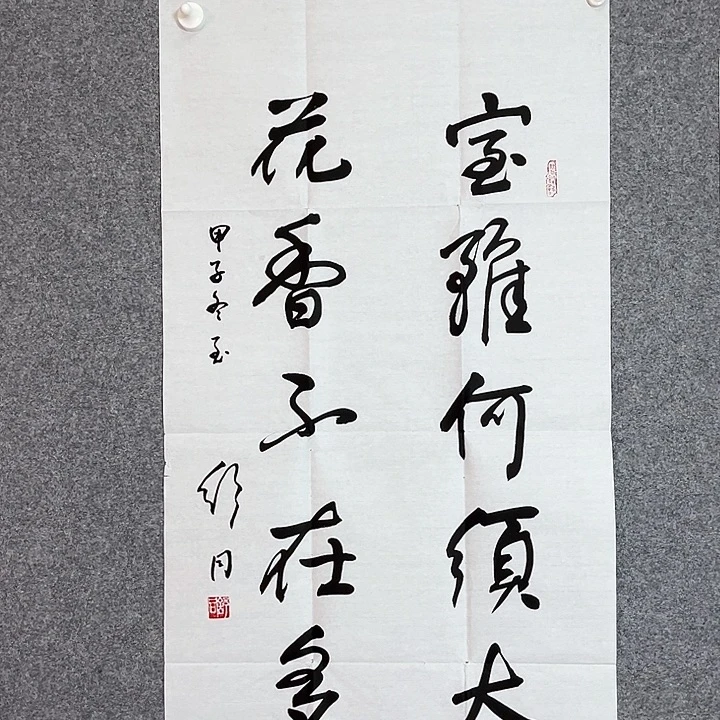 室雅何須大
花香不在多
甲子冬至 舒同